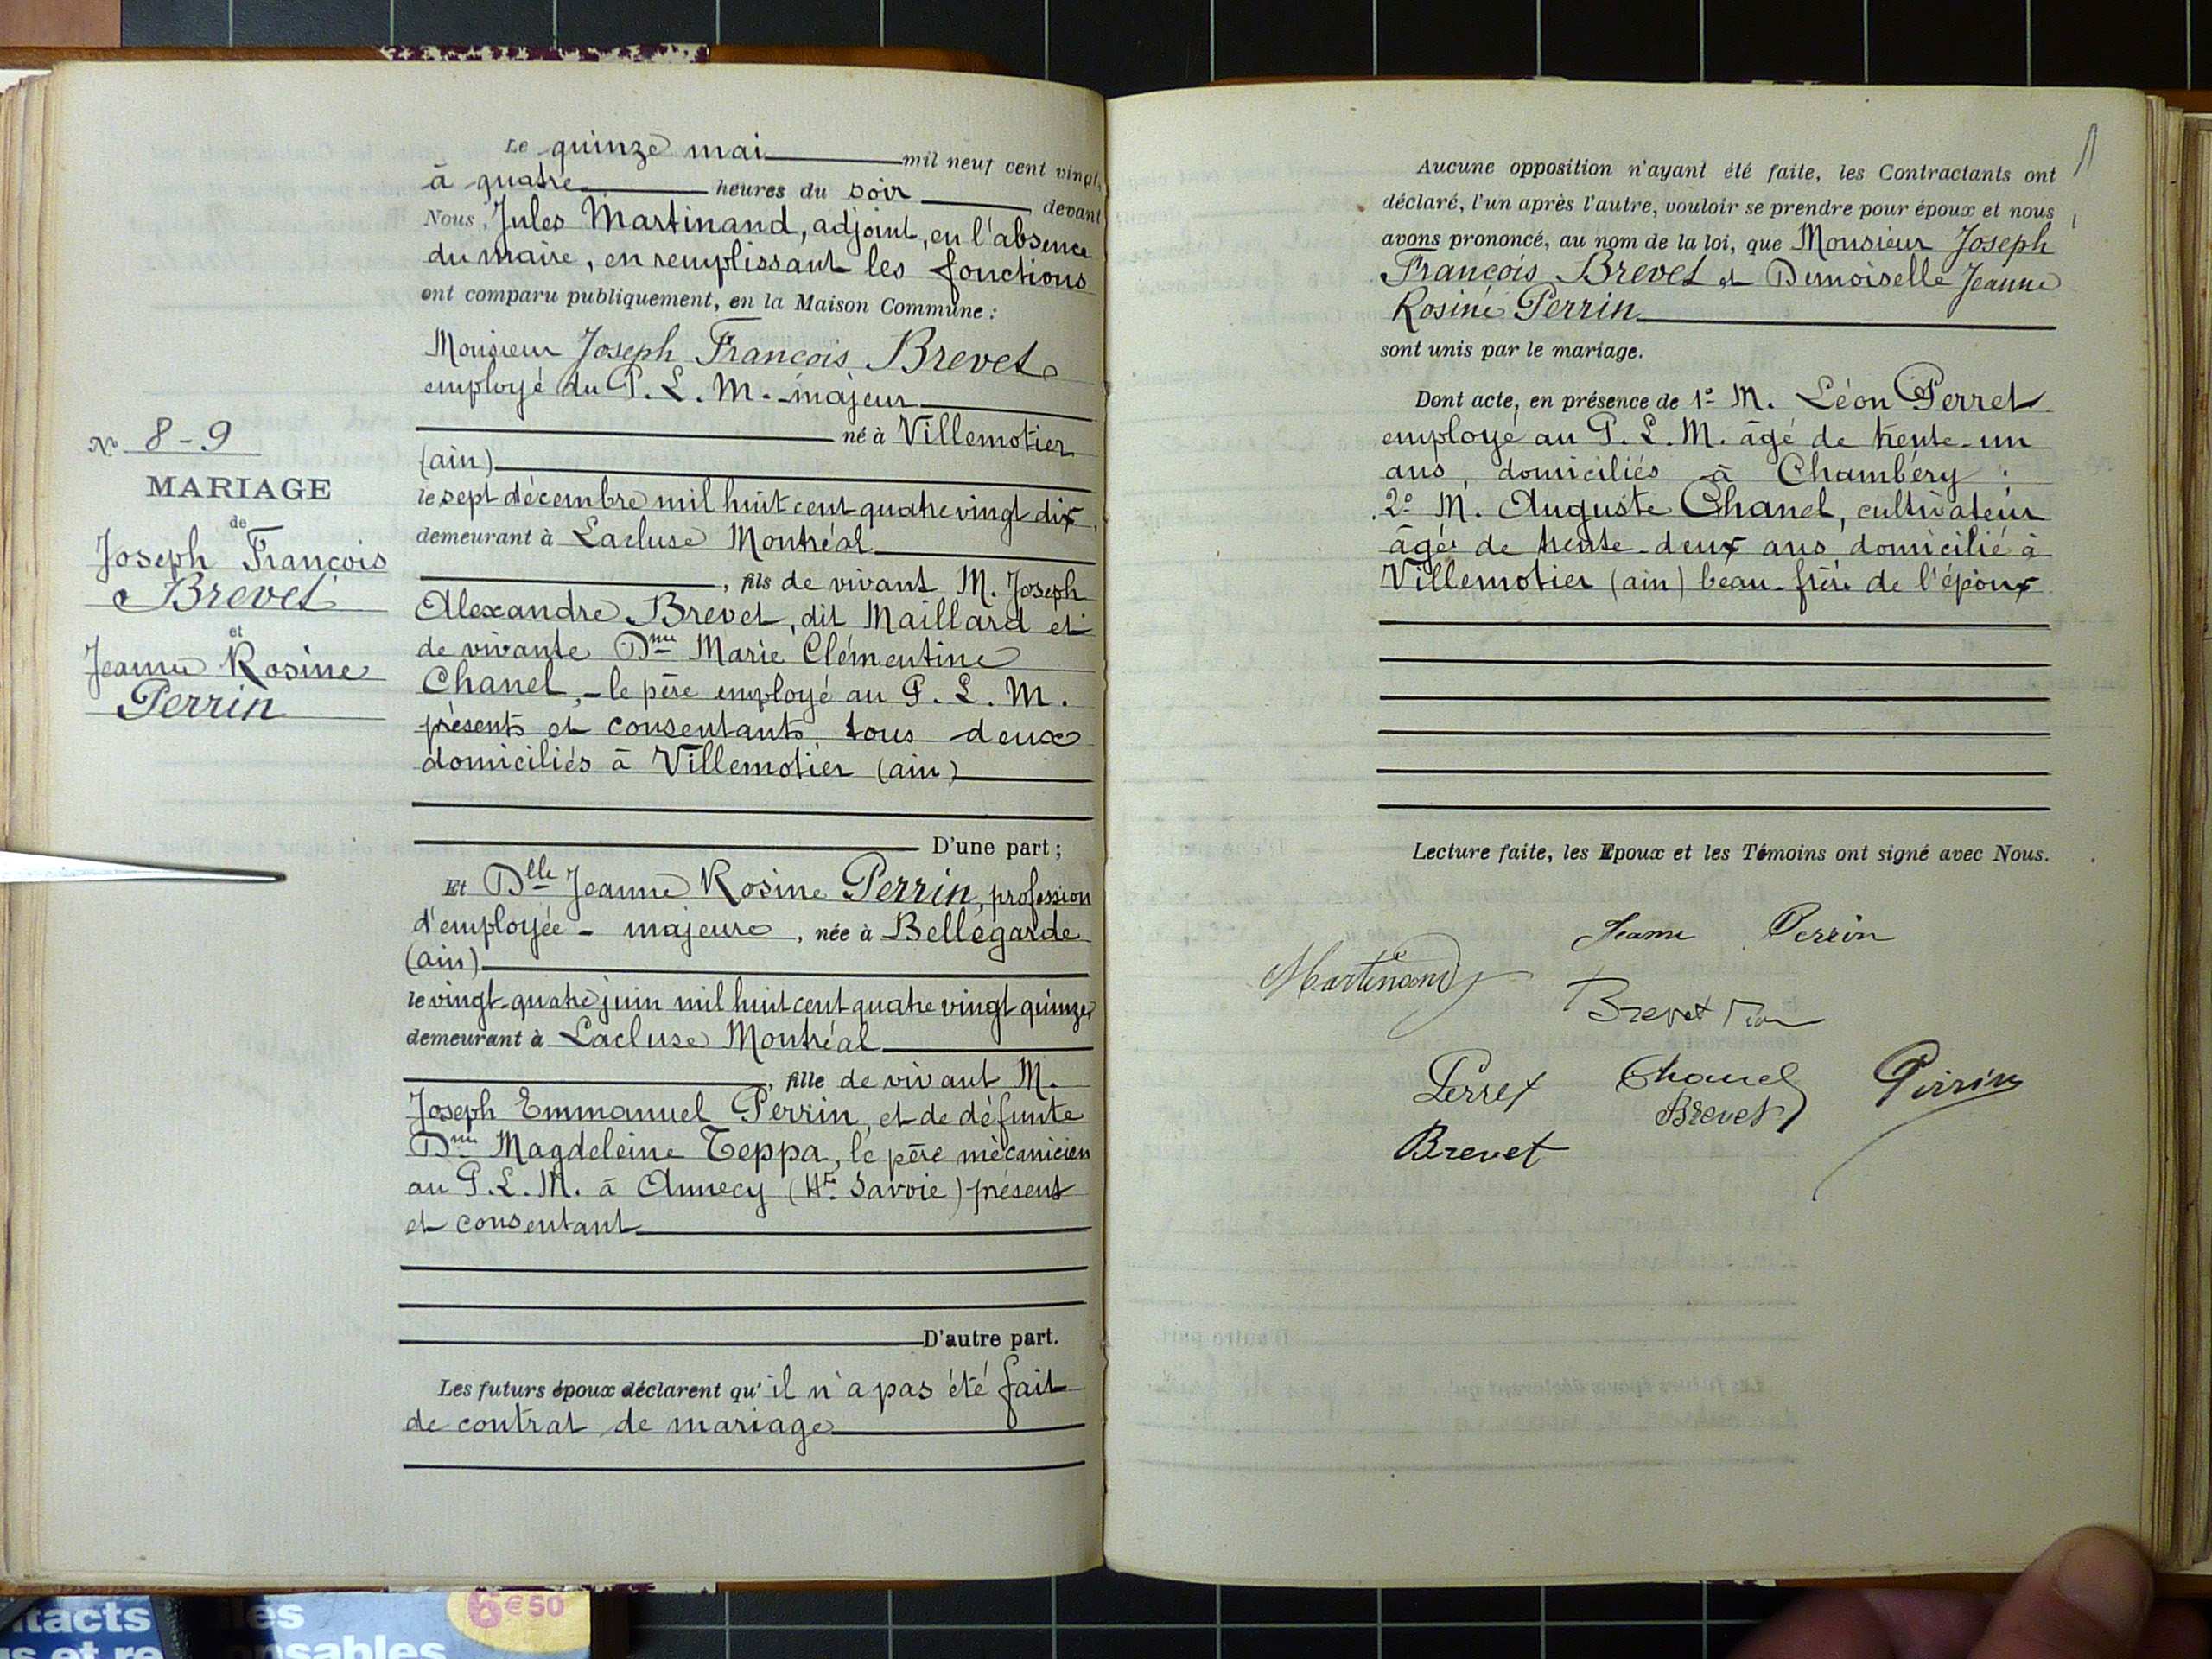 Le quinze mai mil neuf cent vingt,
à quatre heures du soir devant
Nous, Jules Martinand, adjoint, en l'absence
du maire, en remplissant les fonctions
ont comparu publiquement, en la Maison Commune :
Monsieur Joseph François Brevet
employé du P. L. M. - majeur
né à Villemotier
(ain)
le sept décembre mil huit cent quatre vingt dix,
demeurant à Lacluse Montréal
, fils de vivant M. Joseph
Alexandre Brevet, dit Maillard et
de vivante Dme Marie Clémentine
Chanel, - le père employé au P. L. M.
présents et consentants tous deux
domiciliés à Villemotier (ain)
D'une part ;
Et Dlle Jeanne Rosine Perrin, profession
d'employée - majeure, née à Bellegarde
(ain)
le vingt-quatre juin mil huit cent quatre vingt quinze
demeurant à Lacluse Montréal
, fille de vivant M.
Joseph Emmanuel Perrin, et de défunte
Dme Magdeleine Teppa, le père mécanicien
au P. L. M. à Annecy (Hte Savoie) présent
et consentant
D'autre part.
Les futurs époux déclarent qu'il n'a pas été fait
de contrat de mariage
No 8-9
MARIAGE
de
Joseph François
Brevet
et
Jeanne Rosine
Perrin
Aucune opposition n'ayant été faite, les Contractants ont
déclaré, l'un après l'autre, vouloir se prendre pour époux et nous
avons prononcé, au nom de la loi, que Monsieur Joseph
François Brevet et Demoiselle Jeanne
Rosine Perrin
sont unis par le mariage.
Dont acte, en présence de 1º M. Léon Perret
employé au P. L. M. âgé de trente-un
ans, domiciliés à Chambéry ;
2º M. Auguste Chanel, cultivateur
âgé de trente-deux ans domicilié à
Villemotier (ain) beau-frère de l'époux
Lecture faite, les Epoux et les Témoins ont signé avec Nous.
Jeanne Perrin
Martinand
Brevet
Perret Chanel Perrin
Brevet
Brevet
tacts
s et re
les
nsables
6€50